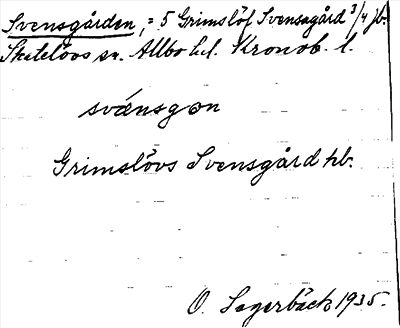 Svensgården, = 5 Grimslöf Svensagård 3/4 jb.
Skatelövs sn. Allbo hd. Kronob. l.
svǽnsgon
Grimslövs Svensgård hb.
O. Lagerbäck 1935.